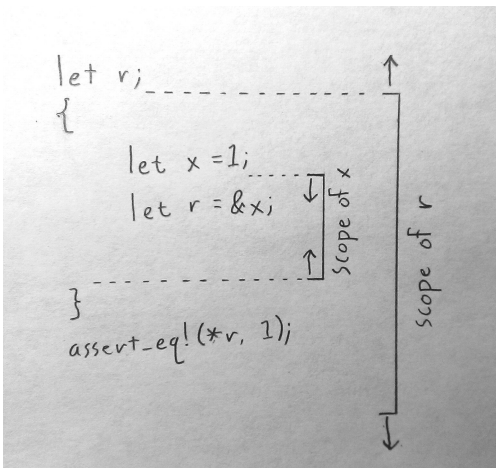 let r;
{
let x = 1;
let r = &x;
}
assert_eq!(*r, 1);
scope of x
scope of r